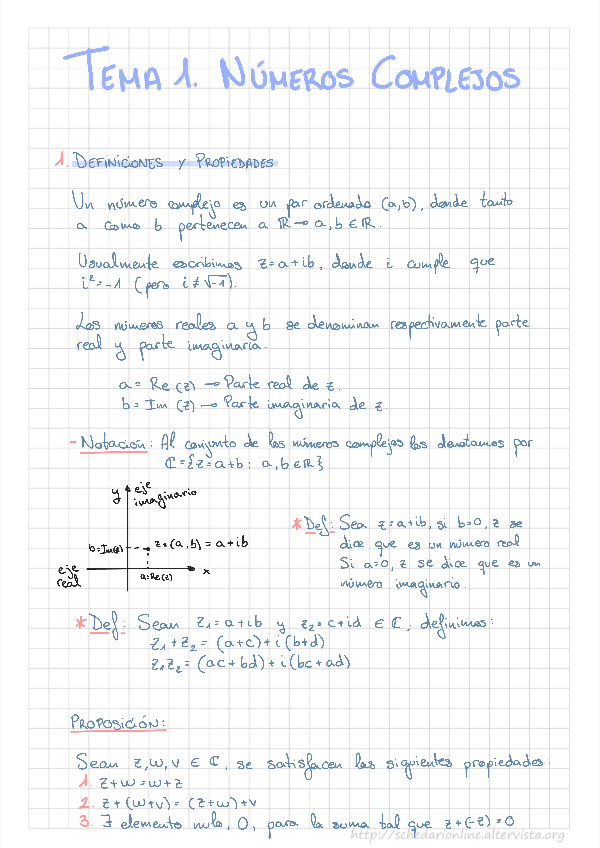 TEMA 1. NÚMEROS COMPLEJOS
1. DEFINICIONES Y PROPIEDADES
Un número complejo es un par ordenado (a,b), donde tanto
a como b pertenecen a ℝ → a,b ∈ ℝ.
Usualmente escribimos z=a+ib, donde i cumple que
i²=-1 (pero i≠√-1).
Los números reales a y b se denominan respectivamente parte
real y parte imaginaria.
a = Re (z) → Parte real de z.
b = Im (z) → Parte imaginaria de z.
- Notación: Al conjunto de los números complejos los denotamos por
ℂ={z=a+b: a,b∈ℝ}
y eje
imaginario
b=Im(z) z=(a,b) = a+ib
eje
real
a=Re(z) x
* Def: Sea z=a+ib, si b=0, z se
dice que es un número real
Si a=0, z se dice que es un
número imaginario.
* Def: Sean z₁=a+ib y z₂=c+id ∈ ℂ, definimos:
z₁+z₂ = (a+c)+i(b+d)
z₁z₂ = (ac+bd)+i(bc+ad)
PROPOSICIÓN:
Sean z,w,v ∈ ℂ, se satisfacen las siguientes propiedades:
1. z+w=w+z
2. z+(w+v) = (z+w)+v
3. ∃ elemento nulo, 0, para la suma tal que z+(-z)=0
http://schedarionline.altervista.org